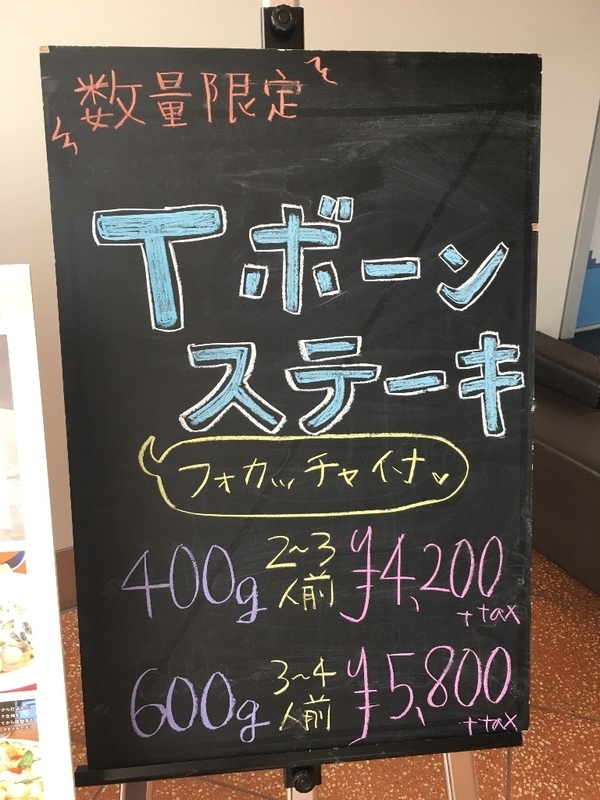 数量限定
Tボーン
ステーキ
フォカッチャ付
400g 2~3人前 ¥4,200 +tax
600g 3~4人前 ¥5,800 +tax